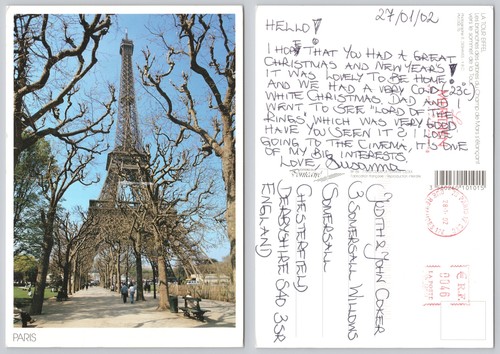 PARIS
27/01/02
HELLO!
I HOPE THAT YOU HAD A GREAT
CHRISTMAS AND NEW YEAR!
IT WAS LOVELY TO BE HOME!
AND WE HAD A VERY COLD (-23°C)
WHITE CHRISTMAS. DAD AND I
WENT TO SEE "LORD OF THE
RINGS', WHICH WAS VERY GOOD.
HAVE YOU SEEN IT? I LOVE
GOING TO THE CINEMA, IT'S ONE
OF MY BIG INTERESTS.
LOVE, Susanna
JUDITH & JOHN COKER
3 SOMERSALL WILLOWS
SOMERSALL
CHESTERFIELD
DERBYSHIRE S40 3SR
ENGLAND
LA TOUR EIFFEL
3 660260 101015
R.F.
0046
LA POSTE